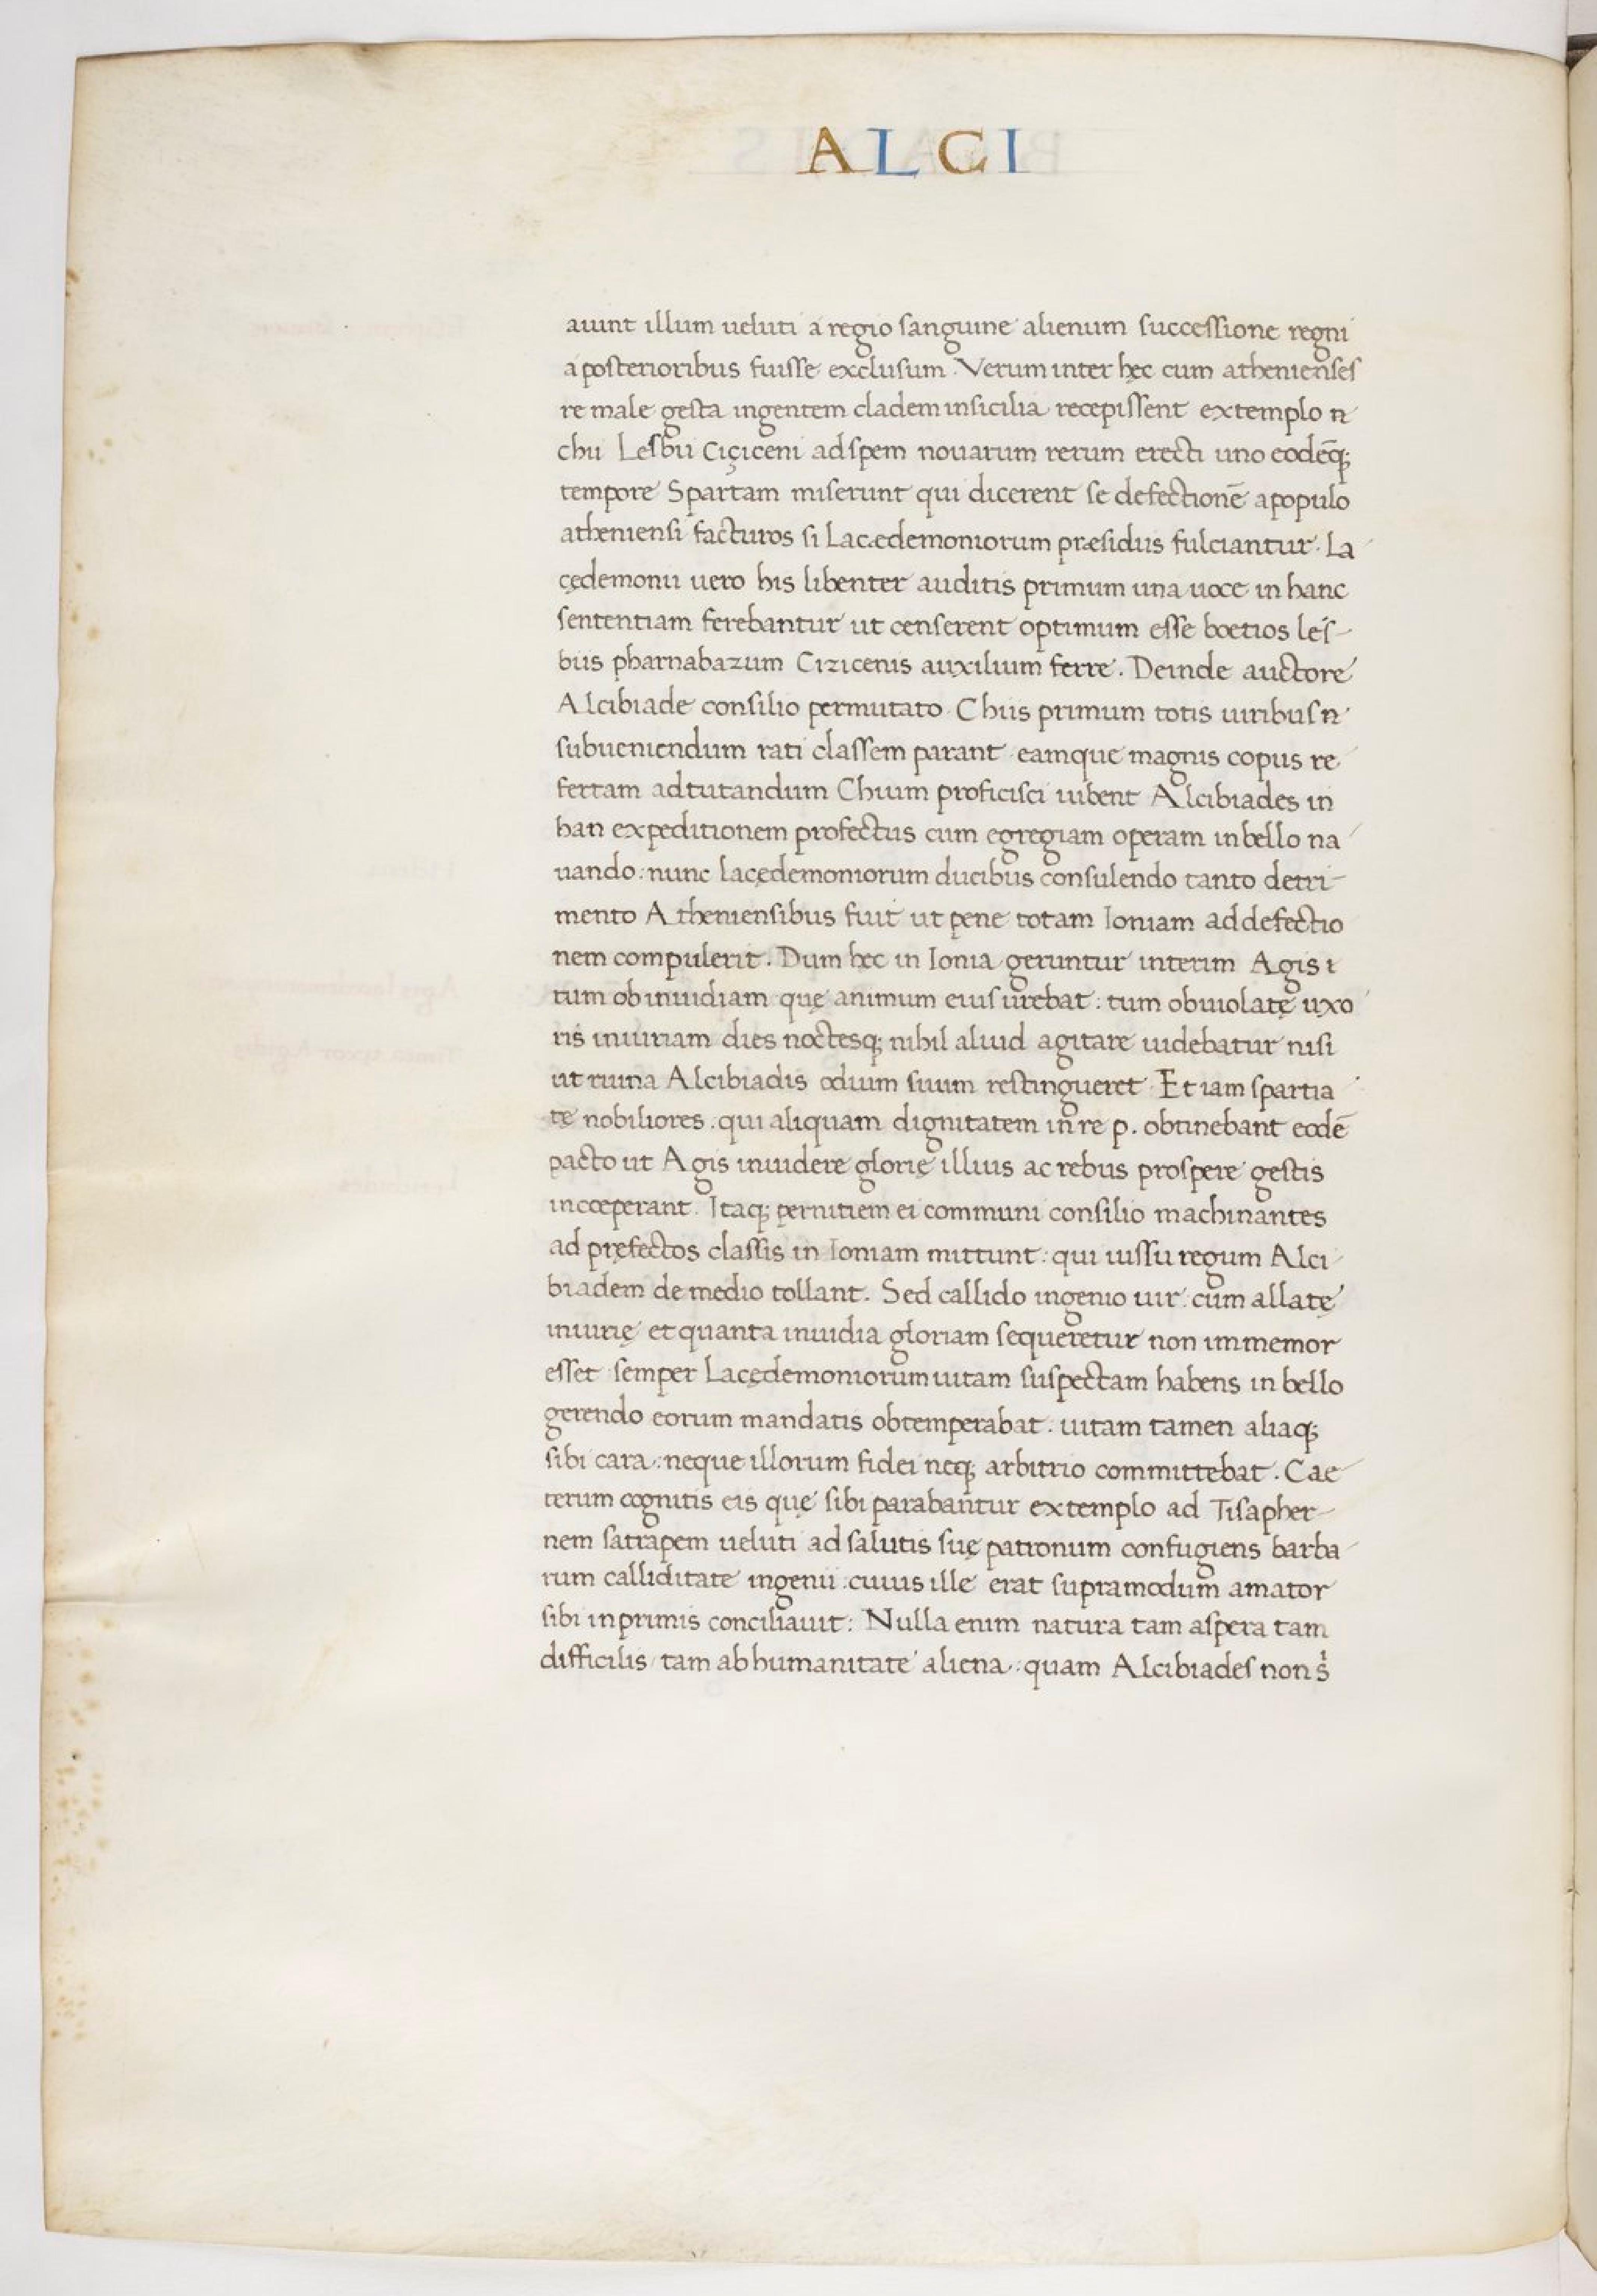 ALCI
aiunt illum ueluti a regio sanguine alienum successione regni
a posterioribus fuisse exclusum. Verum inter hęc cum athenienses
re male gesta ingentem cladem in sicilia recepissent extemplo
chii Lesbii Ciçiceni ad spem nouarum rerum erecti uno eodēq;
tempore Spartam miserunt qui dicerent se defectionē a populo
atheniensi facturos si Lacædemoniorum præsidiis fulciantur. La
cędemonii uero his libenter auditis primum una uoce in hanc
sententiam ferebantur ut censerent optimum esse boetios les-
biis pharnabazum Cizicenis auxilium ferre. Deinde auctore
Alcibiade consilio permutato. Chiis primum totis uiribus
subueniendum rati classem parant eamque magnis copiis re
fertam ad tutandum Chium proficisci iubent Alcibiades in
han expeditionem profectus cum egregiam operam in bello na
uando: nunc lacędemoniorum ducibus consulendo tanto detri-
mento Atheniensibus fuit ut pene totam Ioniam ad defectio
nem compulerit. Dum hęc in Ionia geruntur interim Agis
tum ob inuidiam quę animum eius urebat: tum ob uiolatę uxo
ris iniuriam dies noctesq; nihil aliud agitare uidebatur nisi
ut ruina Alcibiadis odium suum restingueret. Et iam spartia
tę nobiliores. qui aliquam dignitatem in re p. obtinebant eodē
pacto ut Agis inuidere glorię illius ac rebus prospere gestis
incœperant. Itaq; pernitiem ei communi consilio machinantes
ad pręfectos classis in Ioniam mittunt: qui iussu regum Alci
biadem de medio tollant. Sed callido ingenio uir: cum allatę
iniurię et quanta inuidia gloriam sequeretur non immemor
esset semper Lacędemoniorum uitam suspectam habens in bello
gerendo eorum mandatis obtemperabat: uitam tamen aliaq;
sibi cara: neque illorum fidei neq; arbitrio committebat. Cae
terum cognitis eis quę sibi parabantur extemplo ad Tisapher-
nem satrapem ueluti ad salutis suę patronum confugiens barba
rum calliditate ingenii: cuius ille erat supra modum amator
sibi in primis conciliauit: Nulla enim natura tam aspera tam
difficilis tam ab humanitate aliena: quam Alcibiades non